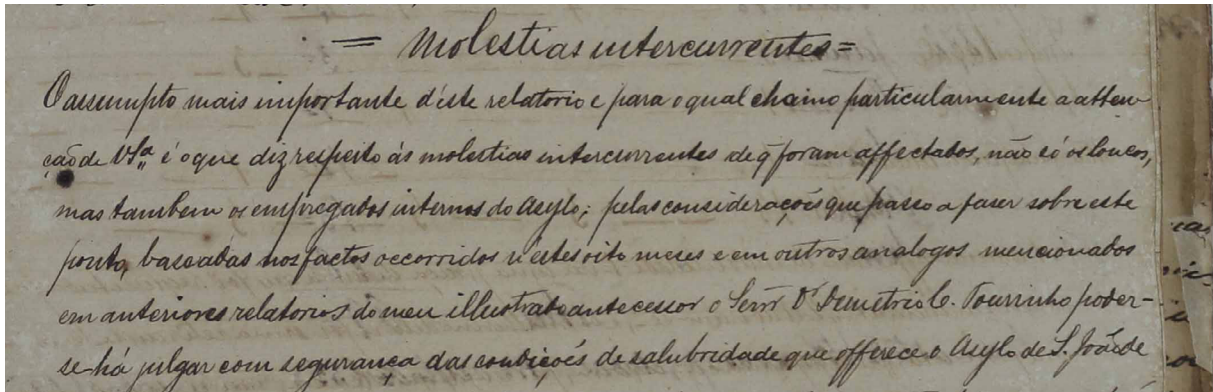 = Molestias intercurrentes =
O assumpto mais importante d'éste relatorio e para o qual chamo particularmente a atten
ção de VSª é o que diz respeito ás molestias intercurrentes de q̃ foram affectados, não só os loucos,
mas tambem os empregados internos do Asylo; pelas considerações que passo a faser sobre este
ponto, baseadas nos factos occorridos n'estes oito meses e em outros analogos mencionados
em anteriores relatorios do meu illustrado antecessor o Senr Dr Demetrio C. Tourinho poder-
se-há julgar com segurança das condições de salubridade que offerece o Asylo de S. João de